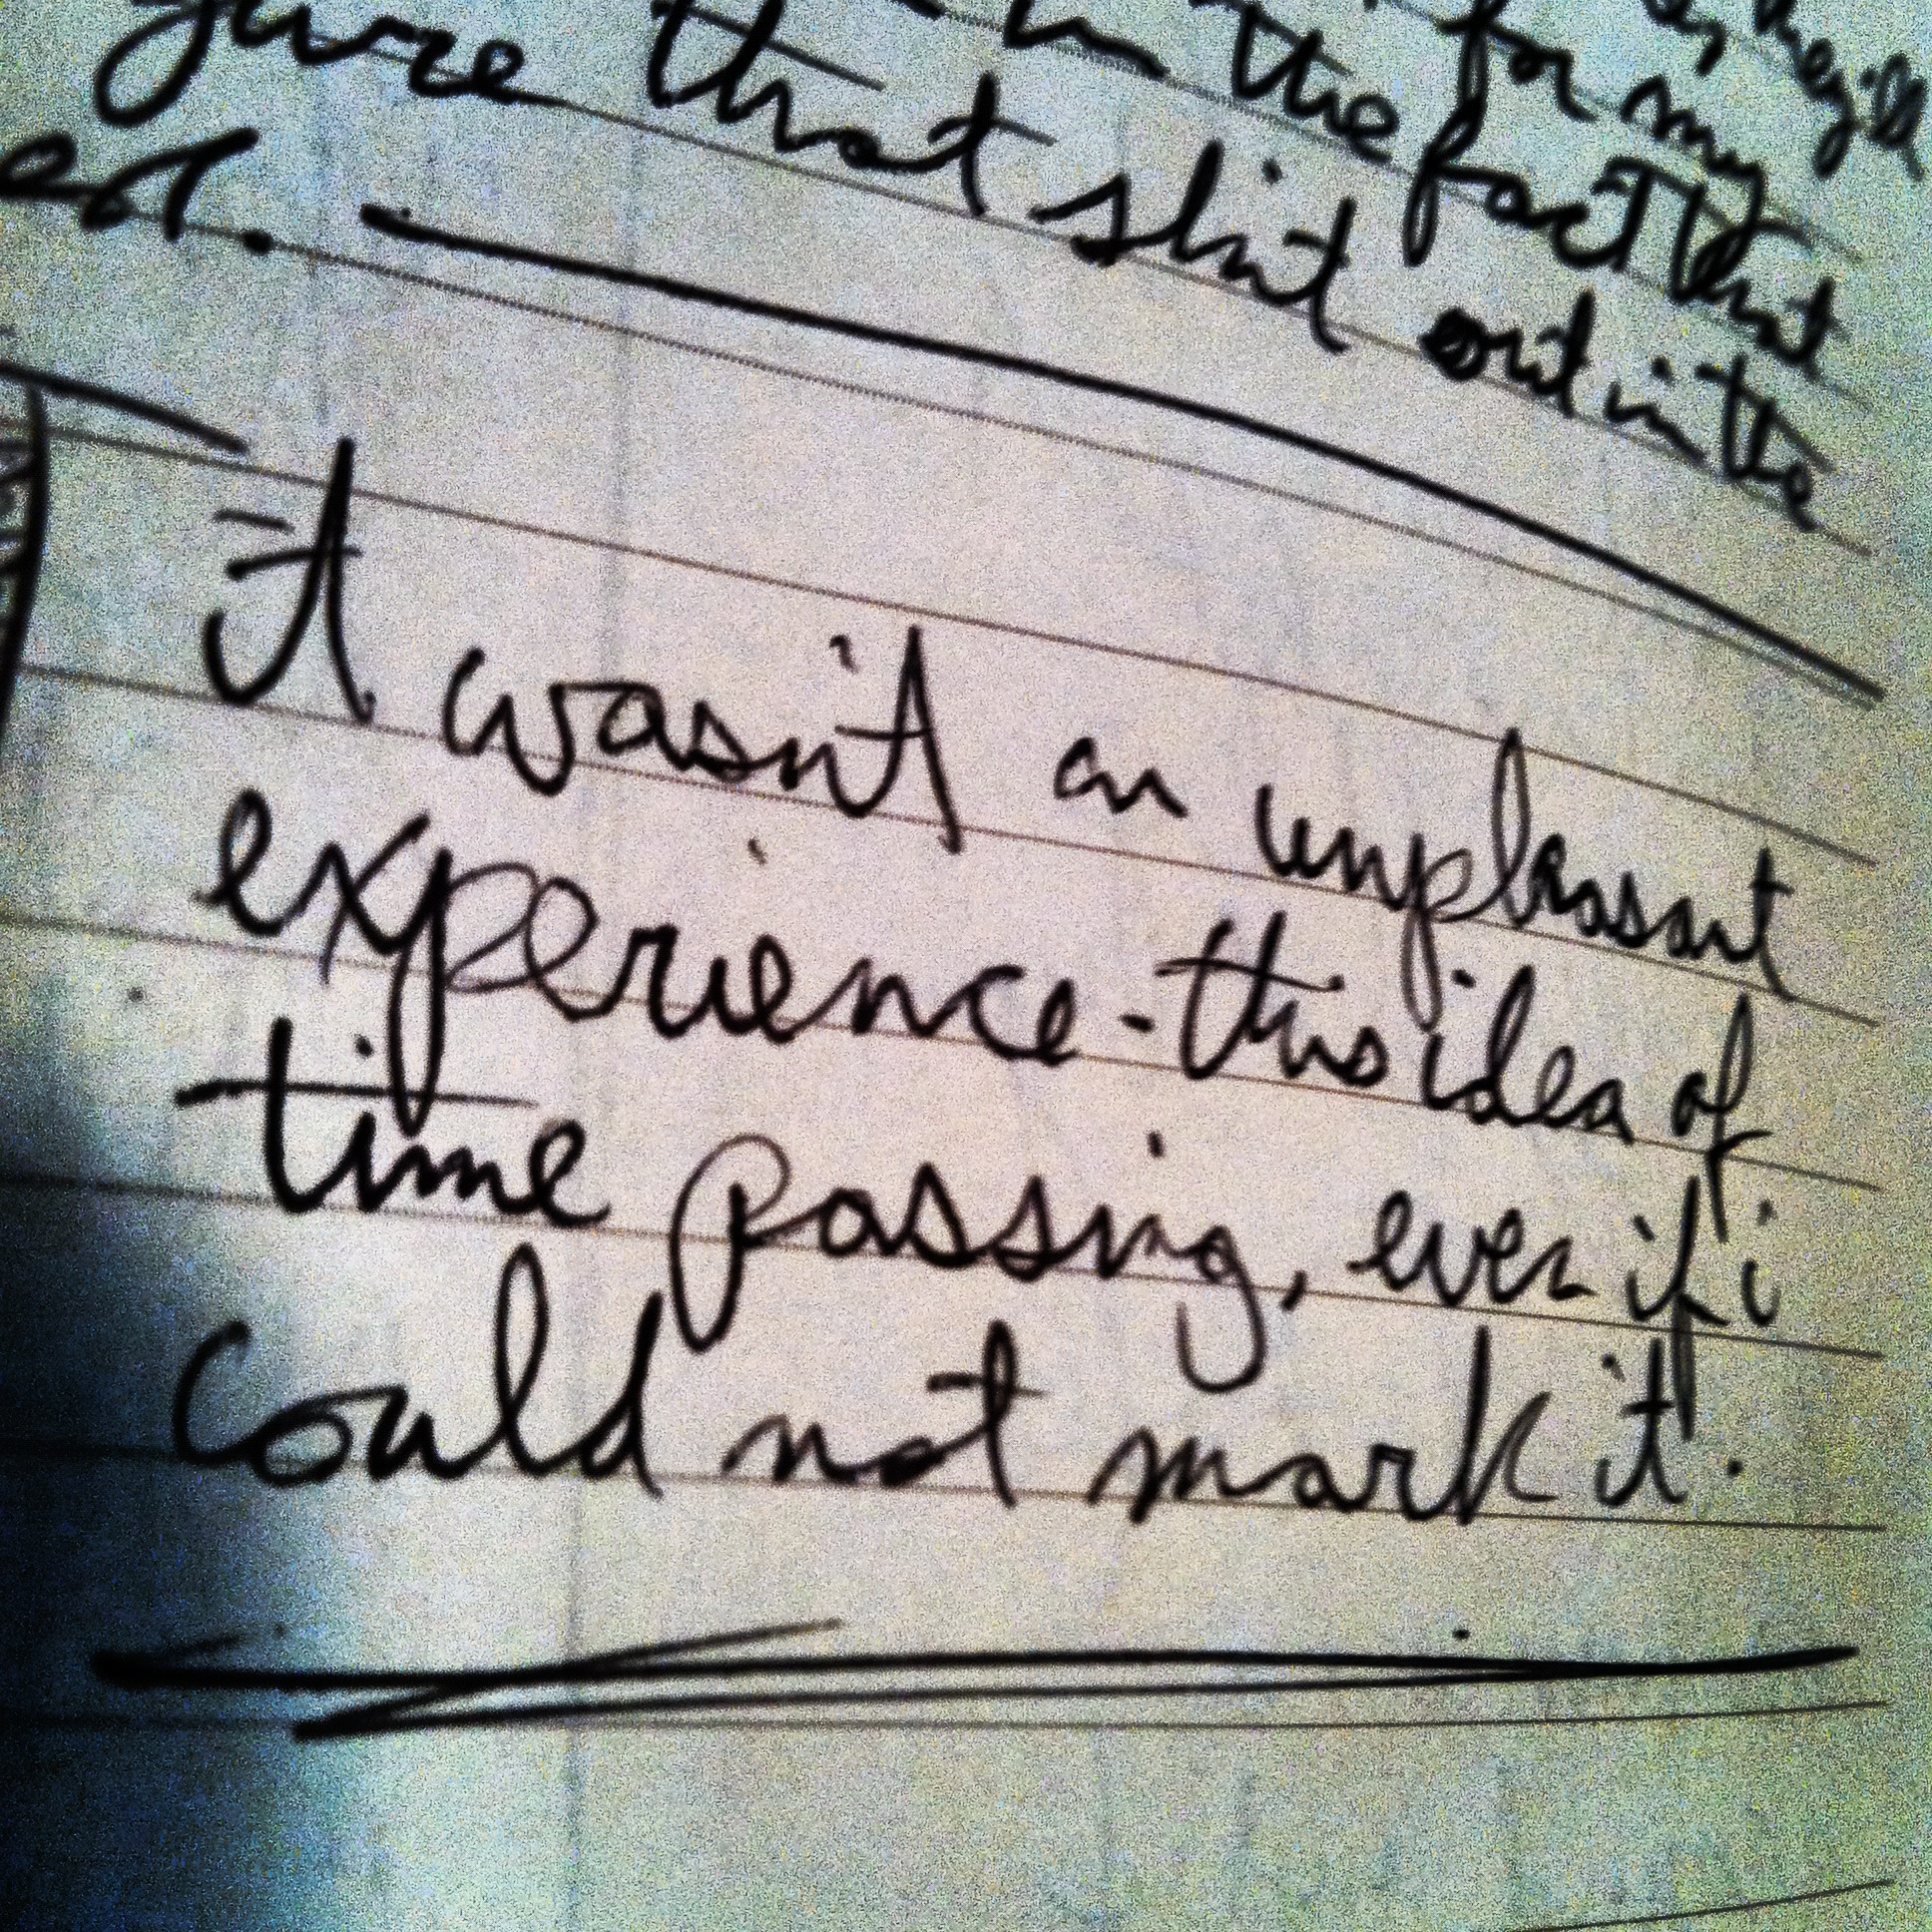 for my
in the fact that
gure that shit out in the
ed.
it wasn't an unplassant
experience - this idea of
time passing, even if i
could not mark it.